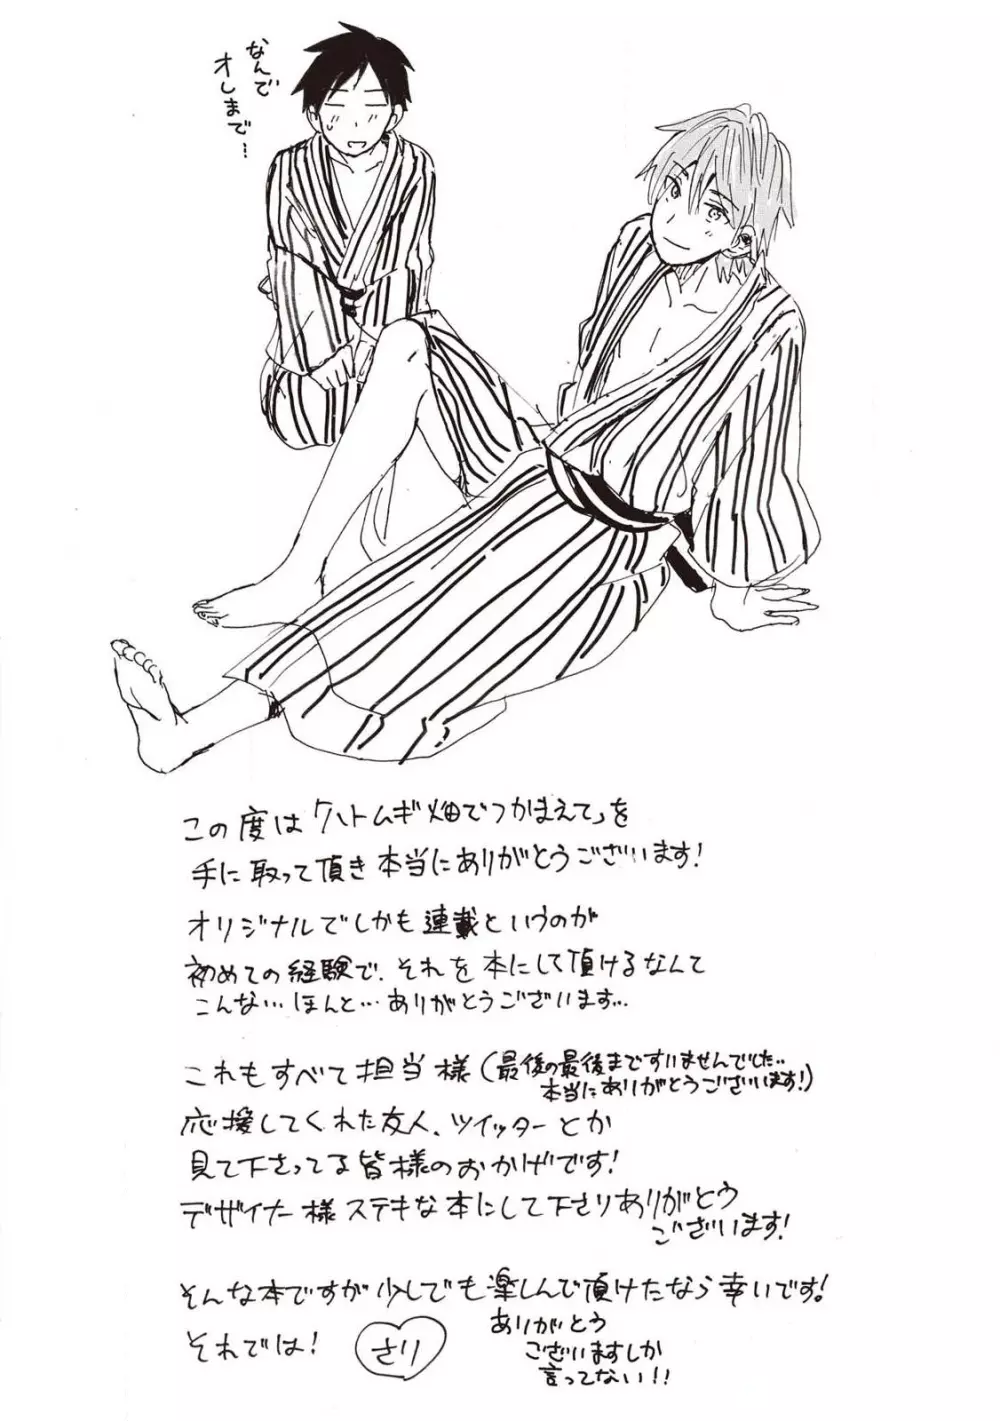 なんで
オレまで…
この度は「ハトムギ畑でつかまえて」を
手に取って頂き本当にありがとうございます!
オリジナルでしかも連載というのが
初めての経験で、それを本にして頂けるなんて
こんな…ほんと…ありがとうございます…
これもすべて担当様(最後の最後まですいませんでした…
本当にありがとうございます!)
応援してくれた友人、ツイッターとか
見て下さってる皆様のおかげです!
デザイナー様ステキな本にして下さりありがとう
ございます!
そんな本ですが少しでも楽しんで頂けたなら幸いです!
それでは!
さり
ありがとう
ございますしか
言ってない!!